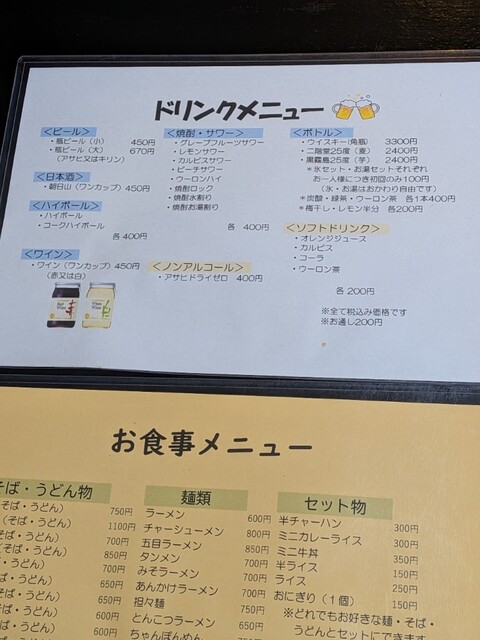 ドリンクメニュー
<ビール>
・瓶ビール（小） 450円
・瓶ビール（大） 670円
（アサヒ又はキリン）
<日本酒>
・朝日山（ワンカップ）450円
<ハイボール>
・ハイボール
・コークハイボール
各 400円
<ワイン>
・ワイン（ワンカップ）450円
（赤又は白）
<焼酎・サワー>
・グレープフルーツサワー
・レモンサワー
・カルピスサワー
・ピーチサワー
・ウーロンハイ
・焼酎ロック
・焼酎水割り
・焼酎お湯割り
各 400円
<ノンアルコール>
・アサヒドライゼロ 400円
<ボトル>
・ウイスキー(角瓶) 3300円
・二階堂25度（麦） 2400円
・黒霧島25度（芋） 2400円
＊氷セット・お湯セットそれぞれ
お一人様につき初回のみ100円
（氷・お湯はおかわり自由です）
＊炭酸・緑茶・ウーロン茶 各1本400円
＊梅干し・レモン半分 各200円
<ソフトドリンク>
・オレンジジュース
・カルピス
・コーラ
・ウーロン茶
各 200円
※全て税込み価格です
※お通し200円
お食事メニュー
そば・うどん物
（そば・うどん） 750円
（そば・うどん） 1100円
（そば・うどん） 700円
（そば・うどん） 850円
（そば・うどん） 700円
（そば・うどん） 650円
（そば・うどん） 650円
（そば・うどん） 600円
麺類
ラーメン 600円
チャーシューメン 800円
五目ラーメン 850円
タンメン 700円
みそラーメン 700円
あんかけラーメン 700円
担々麺 750円
とんこつラーメン 650円
ちゃんぽんめん
セット物
半チャーハン 300円
ミニカレーライス 300円
ミニ牛丼 350円
半ライス 150円
ライス 250円
おにぎり（１個） 150円
※どれでもお好きな麺・そば・
うどんとセットにできます